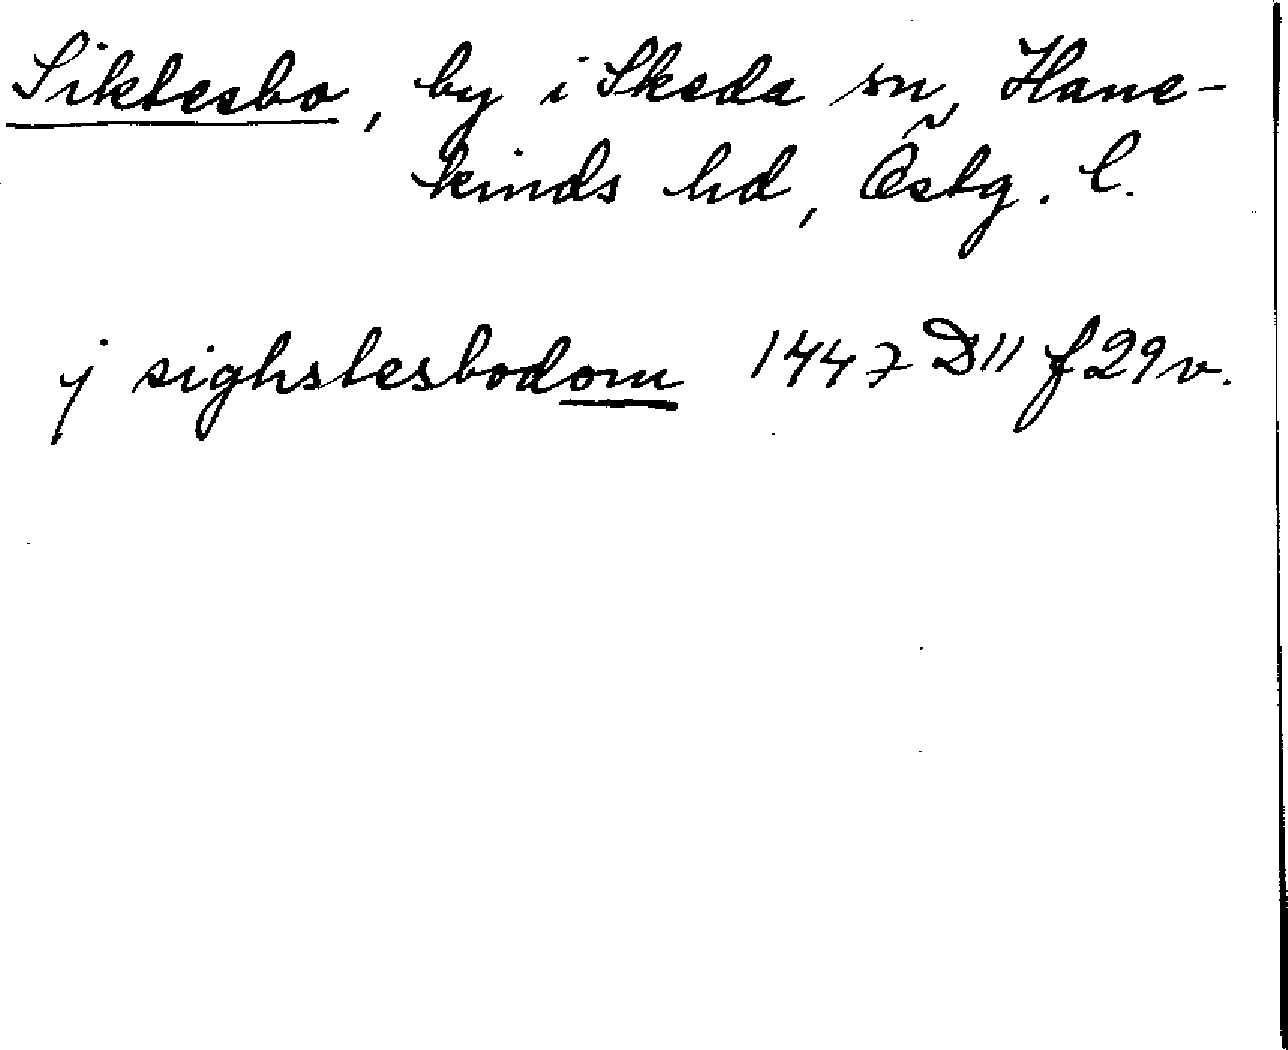 Siktesbo, by i Skeda sn, Hane-
kinds hd, Östg. l.
j sighstesbodom 1447 D11 f 29 v.